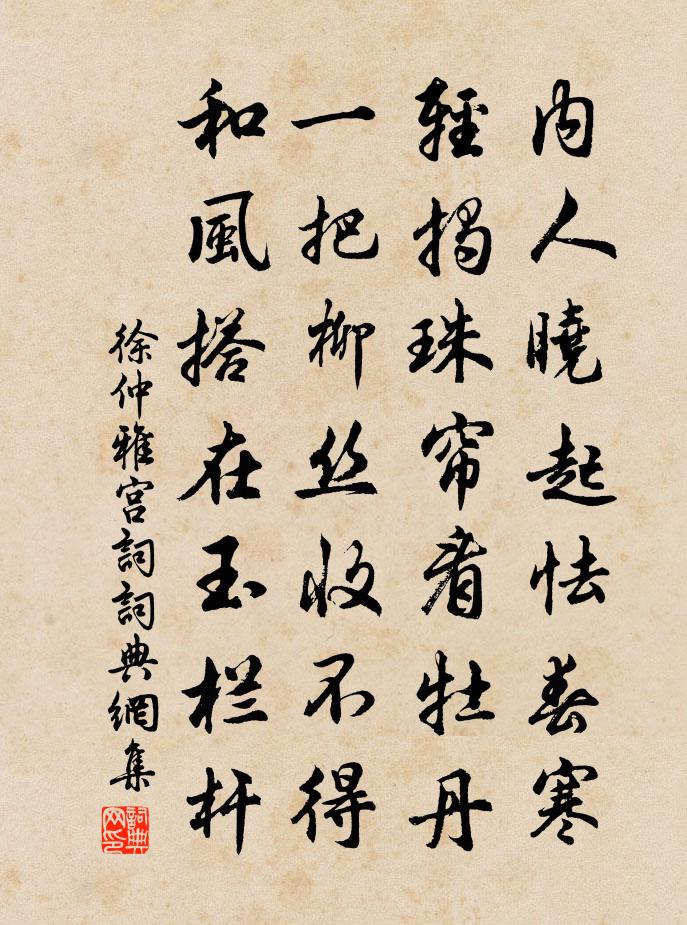 內人曉起怯春寒
輕揭珠帘看牡丹
一把柳丝收不得
和風搭在玉栏杆
徐仲雅宫詞詞典網集
詞典网印